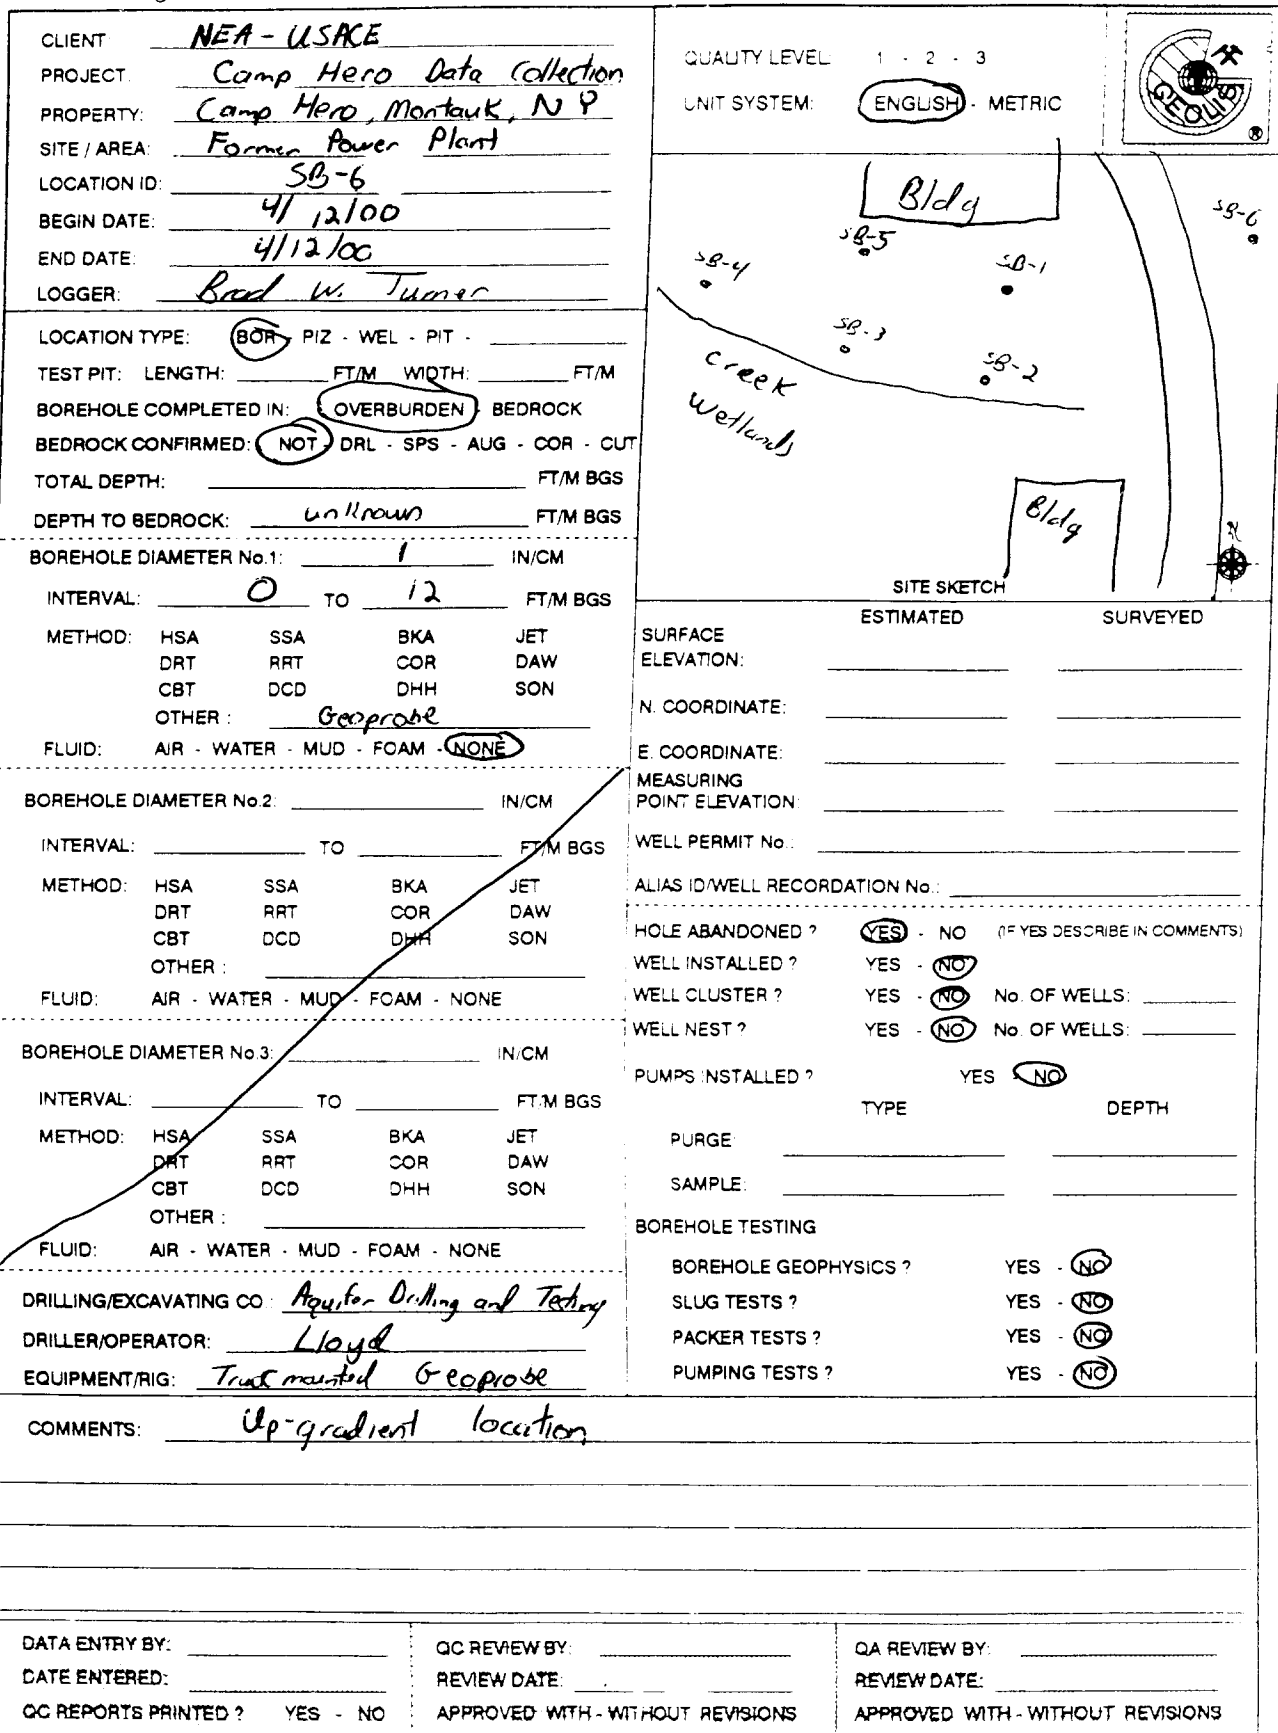 CLIENT NEA - USACE
PROJECT Camp Hero Data Collection
PROPERTY: Camp Hero, Montauk, NY
SITE / AREA: Former Power Plant
LOCATION ID: SB-6
BEGIN DATE: 4/12/00
END DATE: 4/12/00
LOGGER: Brad W. Turner
QUALITY LEVEL: 1 - 2 - 3
UNIT SYSTEM: ENGLISH - METRIC
GEOLIS ®
Bldg
SB-6
SB-5
SB-4
SB-1
SB-3
SB-2
Creek
Wetlands
Bldg
N
SITE SKETCH
LOCATION TYPE: BOR - PIZ - WEL - PIT -
TEST PIT: LENGTH: FT/M WIDTH: FT/M
BOREHOLE COMPLETED IN: OVERBURDEN - BEDROCK
BEDROCK CONFIRMED: NOT - DRL - SPS - AUG - COR - CUT
TOTAL DEPTH: FT/M BGS
DEPTH TO BEDROCK: unknown FT/M BGS
BOREHOLE DIAMETER No.1: 1 IN/CM
INTERVAL: 0 TO 12 FT/M BGS
METHOD: HSA SSA BKA JET
DRT RRT COR DAW
CBT DCD DHH SON
OTHER : Geoprobe
FLUID: AIR - WATER - MUD - FOAM - NONE
BOREHOLE DIAMETER No.2: IN/CM
INTERVAL: TO FT/M BGS
METHOD: HSA SSA BKA JET
DRT RRT COR DAW
CBT DCD DHH SON
OTHER :
FLUID: AIR - WATER - MUD - FOAM - NONE
BOREHOLE DIAMETER No.3: IN/CM
INTERVAL: TO FT/M BGS
METHOD: HSA SSA BKA JET
DRT RRT COR DAW
CBT DCD DHH SON
OTHER :
FLUID: AIR - WATER - MUD - FOAM - NONE
DRILLING/EXCAVATING CO.: Aquifer Drilling and Testing
DRILLER/OPERATOR: Lloyd
EQUIPMENT/RIG: Truck mounted Geoprobe
ESTIMATED SURVEYED
SURFACE
ELEVATION:
N. COORDINATE:
E. COORDINATE:
MEASURING
POINT ELEVATION:
WELL PERMIT No.:
ALIAS ID/WELL RECORDATION No.:
HOLE ABANDONED ? YES - NO (IF YES DESCRIBE IN COMMENTS)
WELL INSTALLED ? YES - NO
WELL CLUSTER ? YES - NO No. OF WELLS:
WELL NEST ? YES - NO No. OF WELLS:
PUMPS INSTALLED ? YES - NO
TYPE DEPTH
PURGE:
SAMPLE:
BOREHOLE TESTING
BOREHOLE GEOPHYSICS ? YES - NO
SLUG TESTS ? YES - NO
PACKER TESTS ? YES - NO
PUMPING TESTS ? YES - NO
COMMENTS: Up-gradient location
DATA ENTRY BY:
DATE ENTERED:
QC REPORTS PRINTED ? YES - NO
QC REVIEW BY:
REVIEW DATE:
APPROVED WITH - WITHOUT REVISIONS
QA REVIEW BY:
REVIEW DATE:
APPROVED WITH - WITHOUT REVISIONS